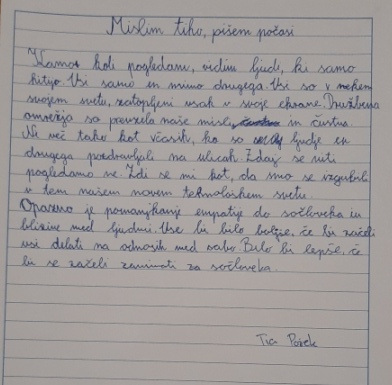 Mislim tiho, pišem počasi
Kamor koli pogledam, vidim ljudi, ki samo
hitijo. Vsi samo en mimo drugega. Vsi so v nekem
svojem svetu, zatopljeni vsak v svoje ekrane. Družbena
omrežja so prevzela naše misli, in čustva.
Ni več tako kot včasih, ko so ljudje en
drugega pozdravljali na ulicah. Zdaj se niti
pogledamo ne. Zdi se mi kot, da smo se izgubili
v tem našem novem tehnološkem svetu.
Opazno je pomanjkanje empatije do sočloveka in
bližine med ljudmi. Vse bi bilo boljše, če bi začeli
vsi delati na odnosih med sabo. Bilo bi lepše, če
bi se začeli zanimati za sočloveka.
Tia